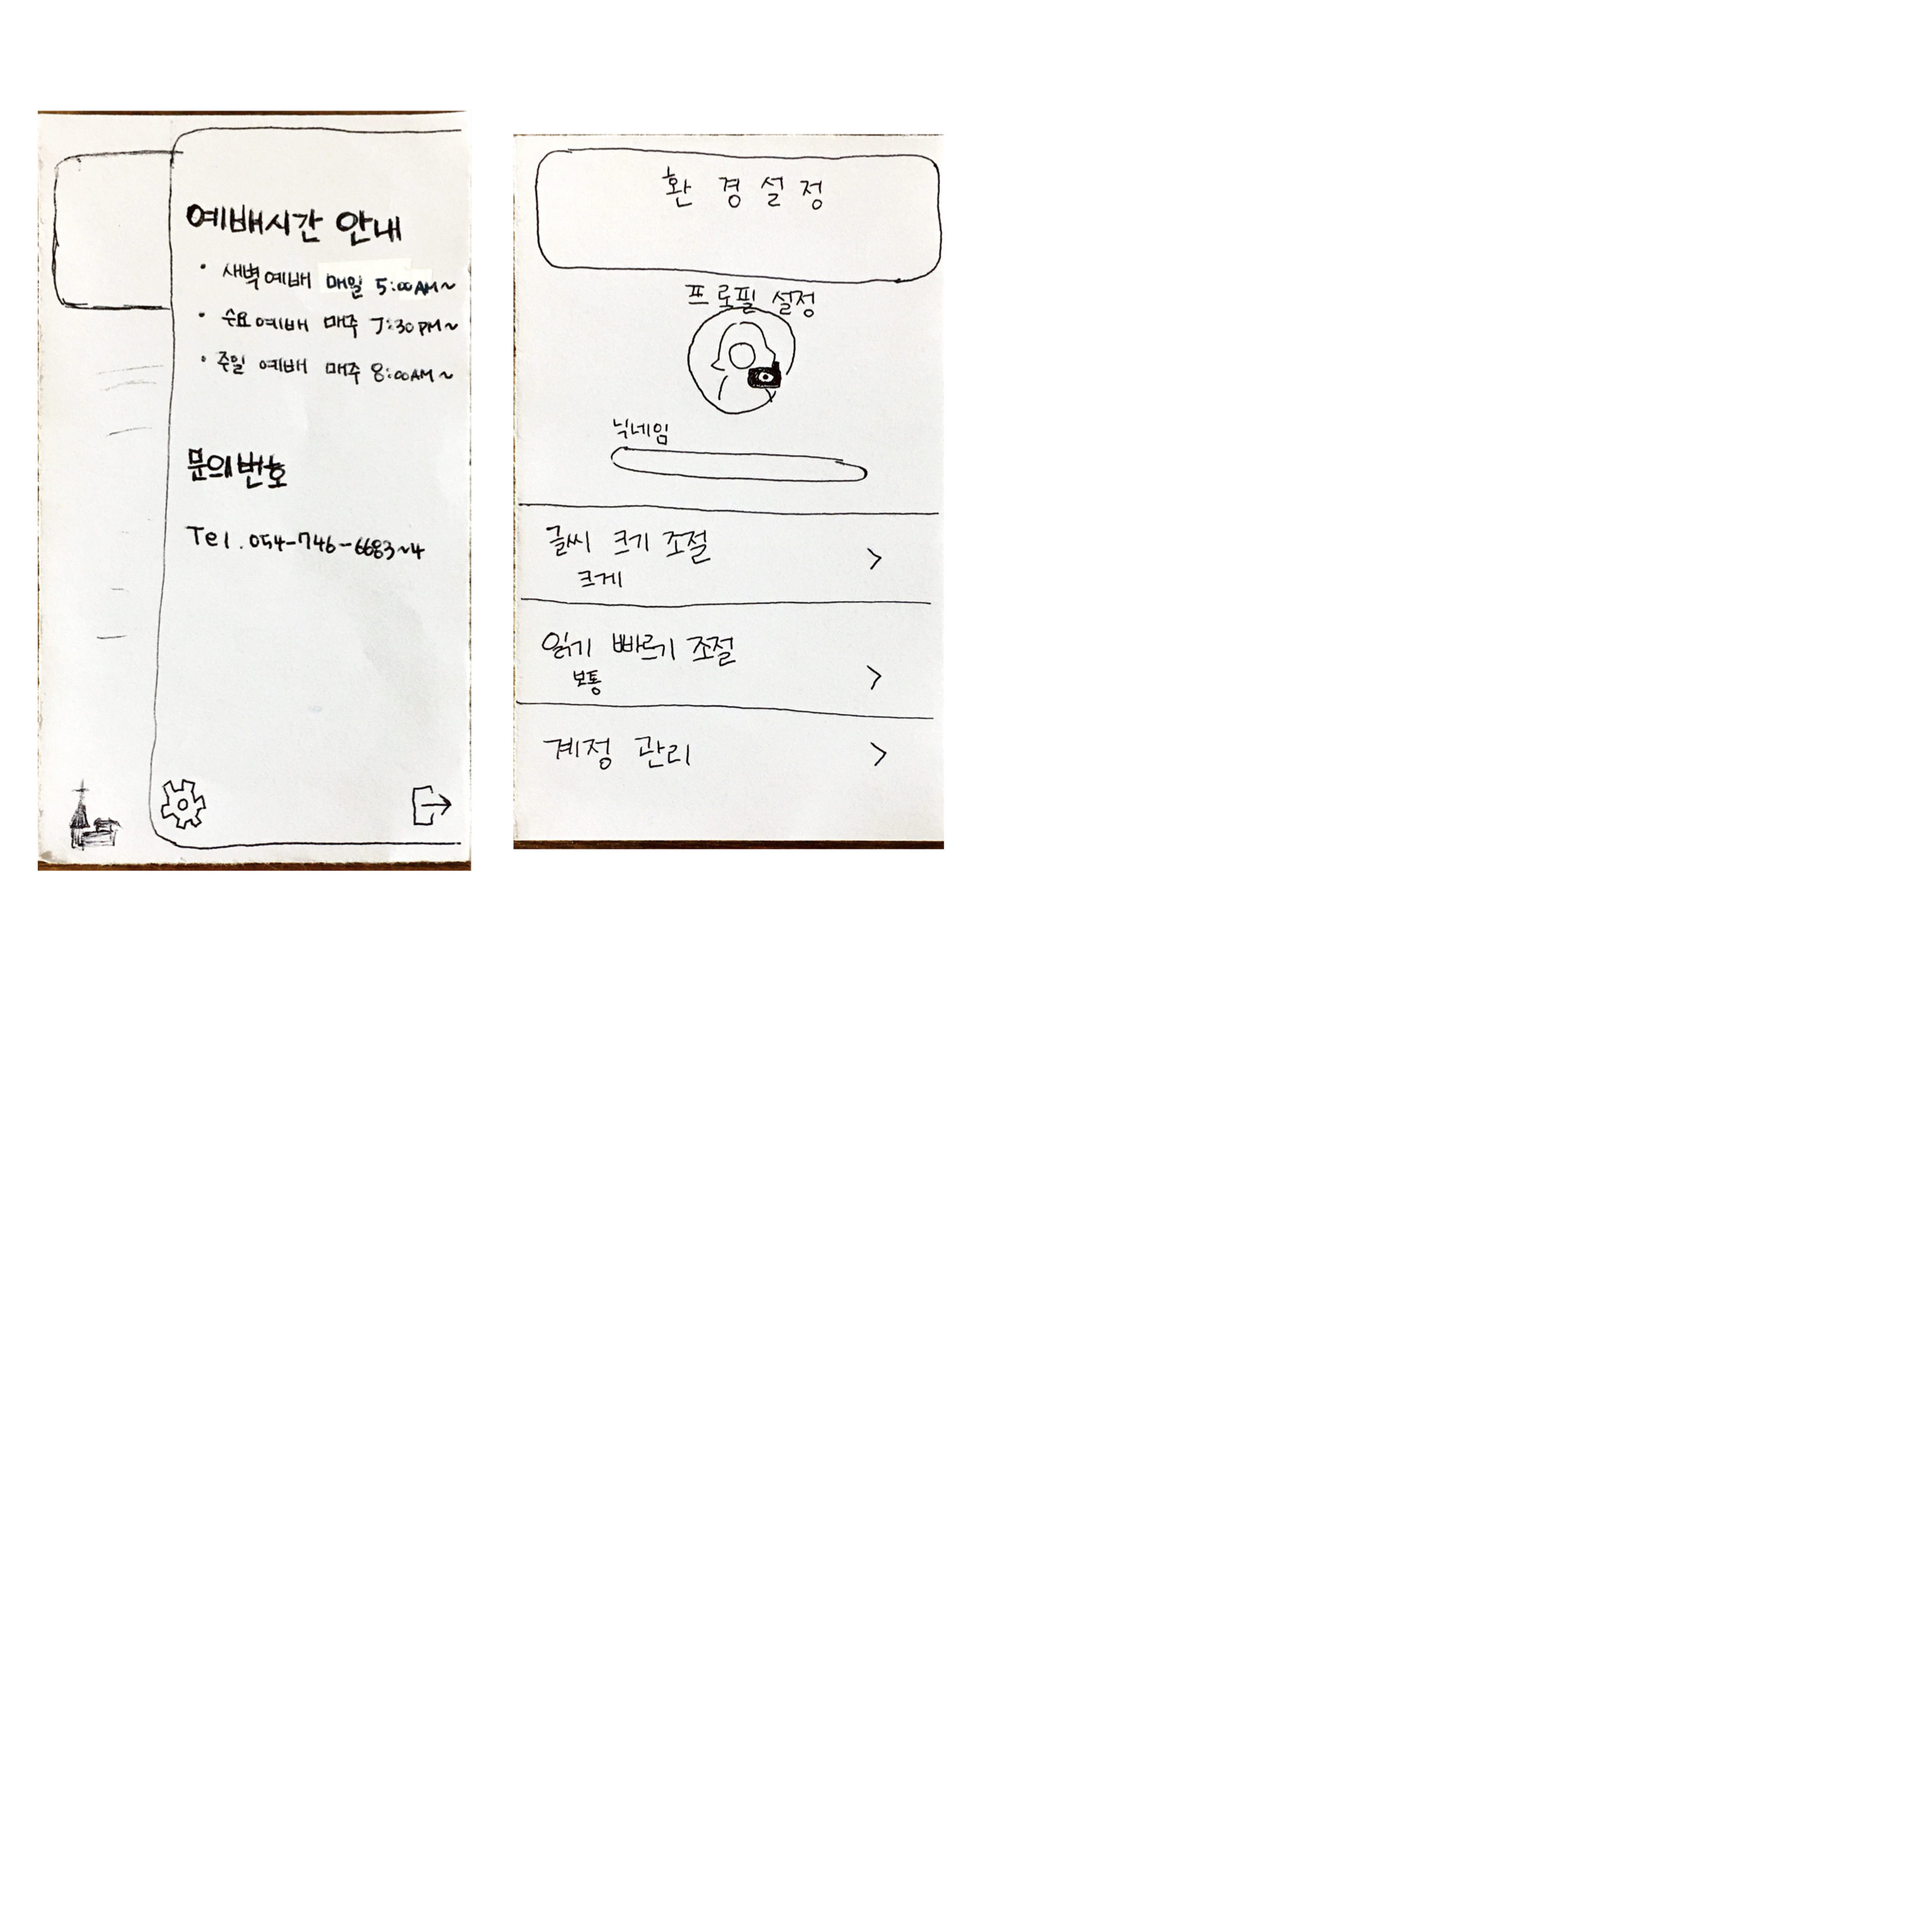 예배시간 안내
• 새벽예배 매일 5:00AM~
• 수요예배 매주 7:30PM~
• 주일 예배 매주 8:00AM~
문의번호
Tel. 054-746-6683~4
환경설정
프로필 설정
닉네임
글씨 크기 조절
크게
읽기 빠르기 조절
보통
계정 관리